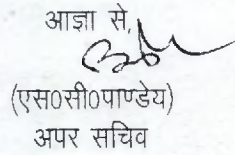 आज्ञा से,
(एस0सी0पाण्डेय)
अपर सचिव